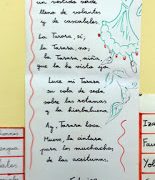 un vestido verde
lleno de volantes
y de cascabeles.
La Tarara, sí,
la tarara, no,
la Tarara, niña,
que la he visto yo.
Luce mi Tarara
su cola de seda
sobre las retamas
y la hierbabuena.
Ay, Tarara loca.
Mueve la cintura
para los muchachos
de las aceitunas.